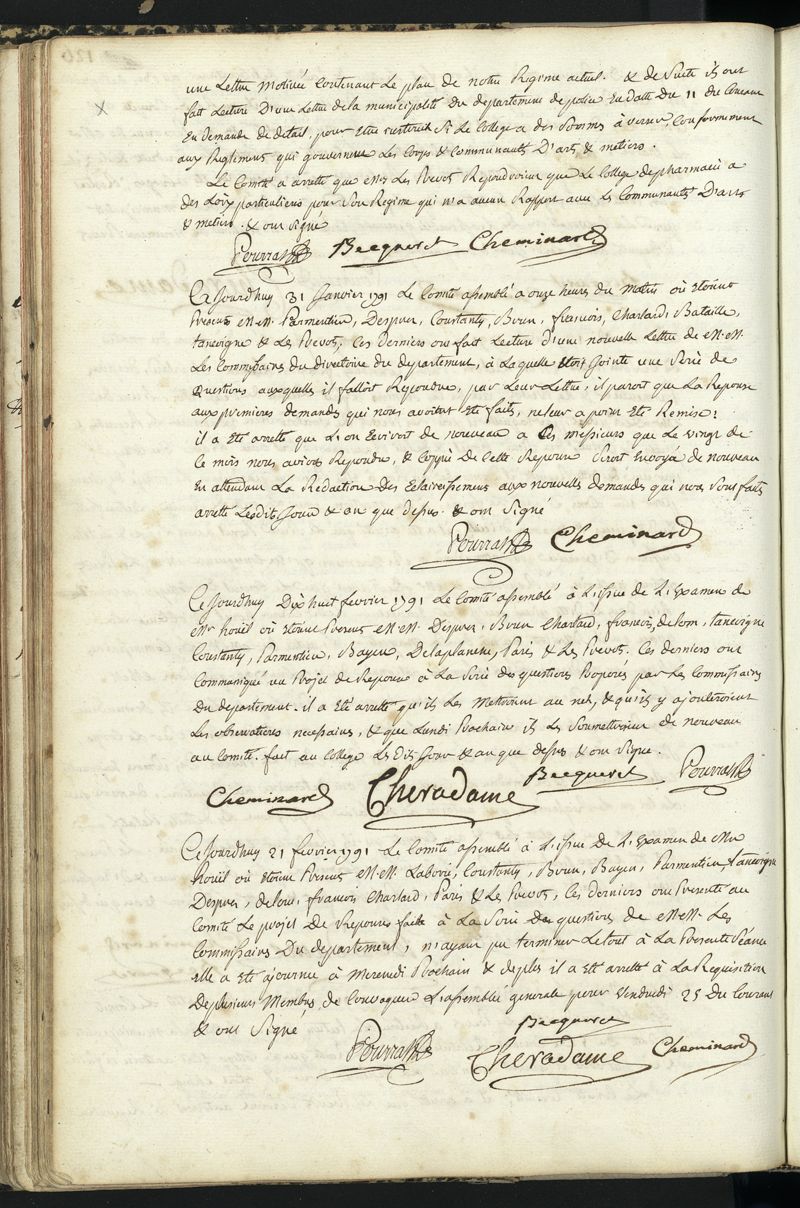 une Lettre motivée Contenant Le plan de notre Regime actuel. & de Suite ils ont
fait Lecture D'une Lettre de la municipalité du departement de police En datte du 11 du Courant
En demande de detail, pour Etre instruit Si Le College a des Sommes à verser, Conformement
aux Reglemens qui gouvernent Les Corps & Communautés D'arts & metiers.
Le Comité a arretté que MM. Les Prevots Repondroient que Le College de pharmacie a
des Loix particulieres pour Son Regime qui n'a aucun Rapport avec les Communautés D'arts
& metiers. & ont Signé
Pourrat Becqueret Cheminard
Ce Jourdhuy 31 Janvier 1791 Le Comité assemblé a onze heures du Matin où Etoient
Presens M.M. Parmentier, Despver, Constanty, Brun, françois, Charlard, Bataille,
tanevigne & Les Prevots, Ces Derniers ont fait Lecture d'une nouvelle Lettre de M.M.
Les Commissaires du directoire du departement, à Laquelle Etoit Jointe une Serie de
Questions auxquelles il falloit Repondre, par Leur Lettre, il paroit que La Reponse
aux premieres demandes qui nous avoient Eté faites, ne leur a point Eté Remise;
il a Eté arretté que L'on Ecriroit de nouveau a Ces messieurs que Le vingt de
Ce mois nous avions Repondu, & Copie de Cette Reponse Seroit Envoyée de nouveau
En attendant La Redaction des Eclaircissemens aux nouvelles demandes qui nous Sont faites
arretté Lesdits Jour & an que dessus. & ont Signé
Pourrat Cheminard
Ce Jourdhuy Dix huit fevrier 1791 Le Comité assemblé à L'issue de L'Examen de
Mr houil où Etoient Presens M.M. Despver, Brun Charlard, françois, delom, tanevigne
Constanty, Parmentier, Bayen, Delaplanche, Paris, & Les Prevots. Ces derniers ont
Communiqué un Projet de Reponse à La Serie des questions Proposées par Les Commissaires
du departement. il a Eté arretté qu'ils Les Mettroient au net, & qu'ils y ajouteroient
Les observations necessaires, & que Lundi Prochain ils Les Soumettroient de nouveau
au Comité. fait au College Les dits Jour & an que dessus & ont Signé.
Cheminard Cheradame Becqueret Pourrat
Ce Jourdhuy 21 fevrier 1791 Le Comité assemblé à L'issue de L'Examen de Mr
houil où Etoient Presens M.M. Laborie, Constanty, Brun, Bayen, Parmentier, tanevigne
Despver, delom, françois Charlard, Paris & Les Prevots, Ces derniers ont Presenté au
Comité Le projet de Reponses faite à La Serie de questions de M.M. Les
Commissaires Du departement, n'ayant pu terminer Le tout à La Presente Séance
elle a Eté ajournée à Mercredi Prochain & de plus il a Eté arretté à La Requisition
de plusieurs Membres de Convoquer L'assemblée generale pour Vendredi 25 Du Courant
& ont Signé
Becqueret
Pourrat Cheradame Cheminard